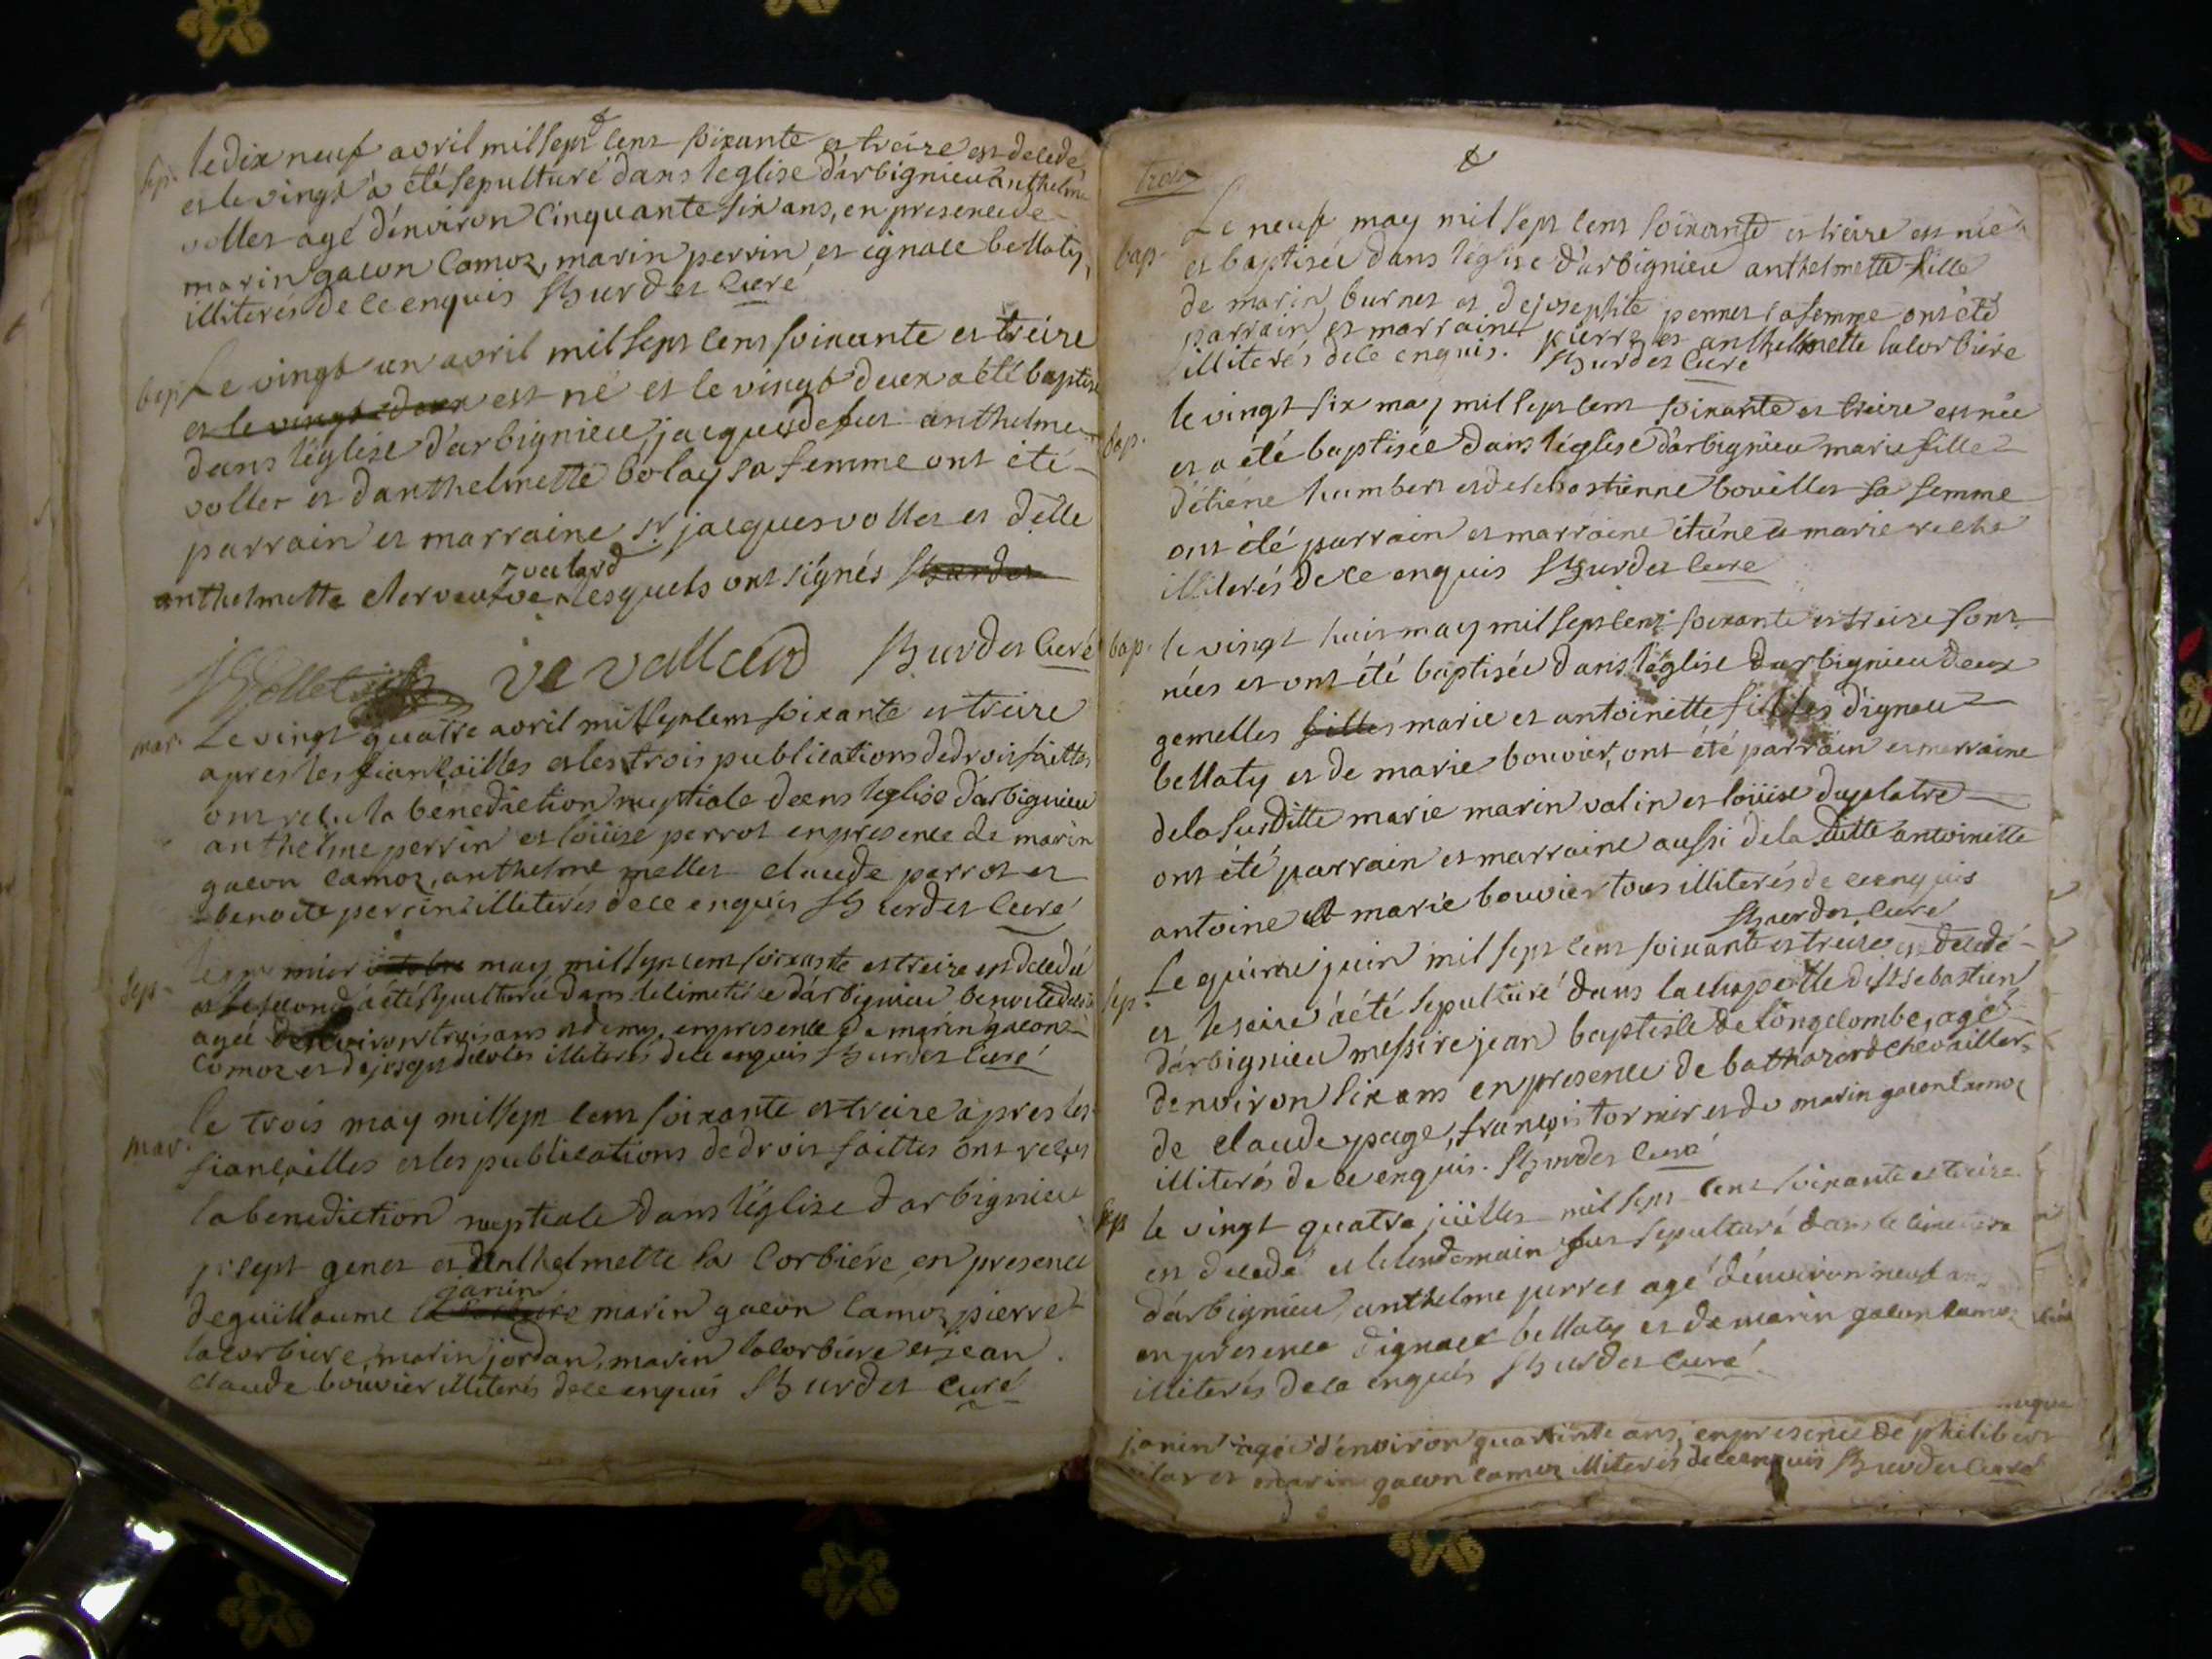 sep.
le dix neuf avril mil sept cent soixante et treize est decedé
et le vingt a été sepulturé dans l'eglise d'arbignieu anthelme
vollet agé d'environ cinquante six ans, en presence de
marin gacon camoz, marin perrin et ignace bellaty,
illiterés de ce enquis Burdet curé
bap.
Le vingt un avril mil sept cent soixante et treize
et le vingt deux est né et le vingt deux a été baptisé
dans l'église d'arbignieu jacques de fut anthelme
vollet et d'anthelmette bolay sa femme ont été
parrain et marraine sr jacques vollet et delle
anthelmette clerc veuve lesquels ont signés Burdet
ve valland Burdet curé
mar.
Le vingt quatre avril mil sept cent soixante et treize
apres les fiançailles et les trois publications de droit faittes
ont reçu la bénediction nuptiale dans l'eglise d'arbignieu
anthelme perrin et loüise perrot en presence de marin
gacon camoz, anthelme mellet claude perrot et
benoite perrin illiterés de ce enquis Burdet curé
sep.
Le premier octobre may mil sept cent soixante et treize est decedée
et le second a été sepulturée dans le cimetiére d'arbignieu benoite
agée d'environ trois ans et demy, en presence de marin gacon
camoz et de illiterés de ce enquis Burdet curé
mar.
le trois may mil sept cent soixante et treize apres les
fiançailles et les publications de droit faittes ont reçus
la benediction nuptiale dans l'église d'arbignieu
genet et anthelmette la corbiére en presence
janin
de guillaume marin gacon camoz, pierre
lacorbiere, marin jordan, marin lacorbiére et jean
claude bouvier illiterés de ce enquis Burdet curé
trois
bap.
Le neuf may mil sept cent soixante et treize est née
et baptisée dans l'église d'arbignieu anthelmette fille
de marin burnet et de josephte pernet sa femme ont été
parrain et marraine pierre et anthelmette lacorbiére
illiterés de ce enquis. Burdet curé
bap.
le vingt six may mil sept cent soixante et treize est née
et a été baptisée dans l'église d'arbignieu marie fille
d'étiene humbert et de sebastienne bouillet sa femme
ont été parrain et marraine étiéne et marie
illiterés de ce enquis Burdet curé
bap.
le vingt huit may mil sept cent soixante et treize sont
nées et ont été baptisée dans l'église d'arbignieu deux
gemelles filles marie et antoinette filles d'ignace
bellaty et de marie bouvier, ont été parrain et marraine
de la susditte marie marin valin et loüise duplatre
ont été parrain et marraine aussi de la ditte antoinette
antoine et marie bouvier tous illiterés de ce enquis
Burdet curé
sep.
Le quinze juin mil sept cent soixante et treize est decedé
et le seize a été sepulturé dans la chapelle de st sebastien
d'arbignieu messire jean baptiste de longecombe, agé
d'environ six ans en presence de balthazard chevaillet
de claude page, françois tornier et de marin gacon camoz
illiterés de ce enquis. Burdet curé
sep
le vingt quatre jüillet mil sept cent soixante et treize
est decedé et le lendemain fut sepulturé dans le cimetiere
d'arbignieu anthelme perret agé d'environ neuf ans
en presence d'ignace bellaty et de marin gacon camoz
illiterés de ce enquis Burdet curé
janin agée d'environ quarante ans, en presence de philibert
et marin gacon camoz illiterés de ce enquis Burdet curé